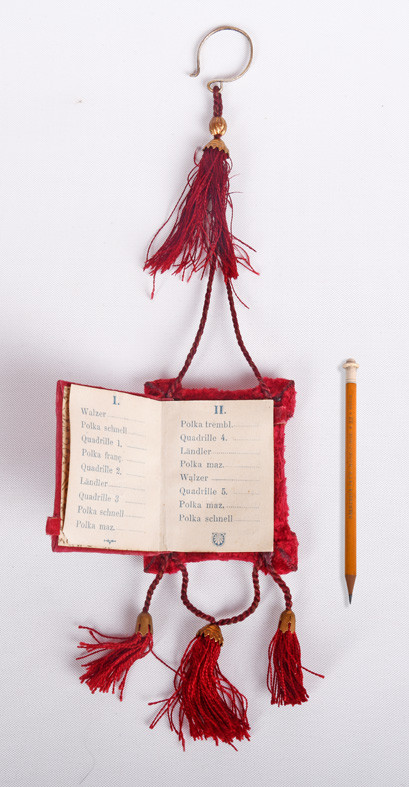 I.
Walzer
Polka schnell
Quadrille 1.
Polka franç.
Quadrille 2.
Ländler
Quadrille 3
Polka schnell
Polka maz.
II.
Polka trembl.
Quadrille 4.
Ländler
Polka maz.
Walzer
Quadrille 5.
Polka maz.
Polka schnell